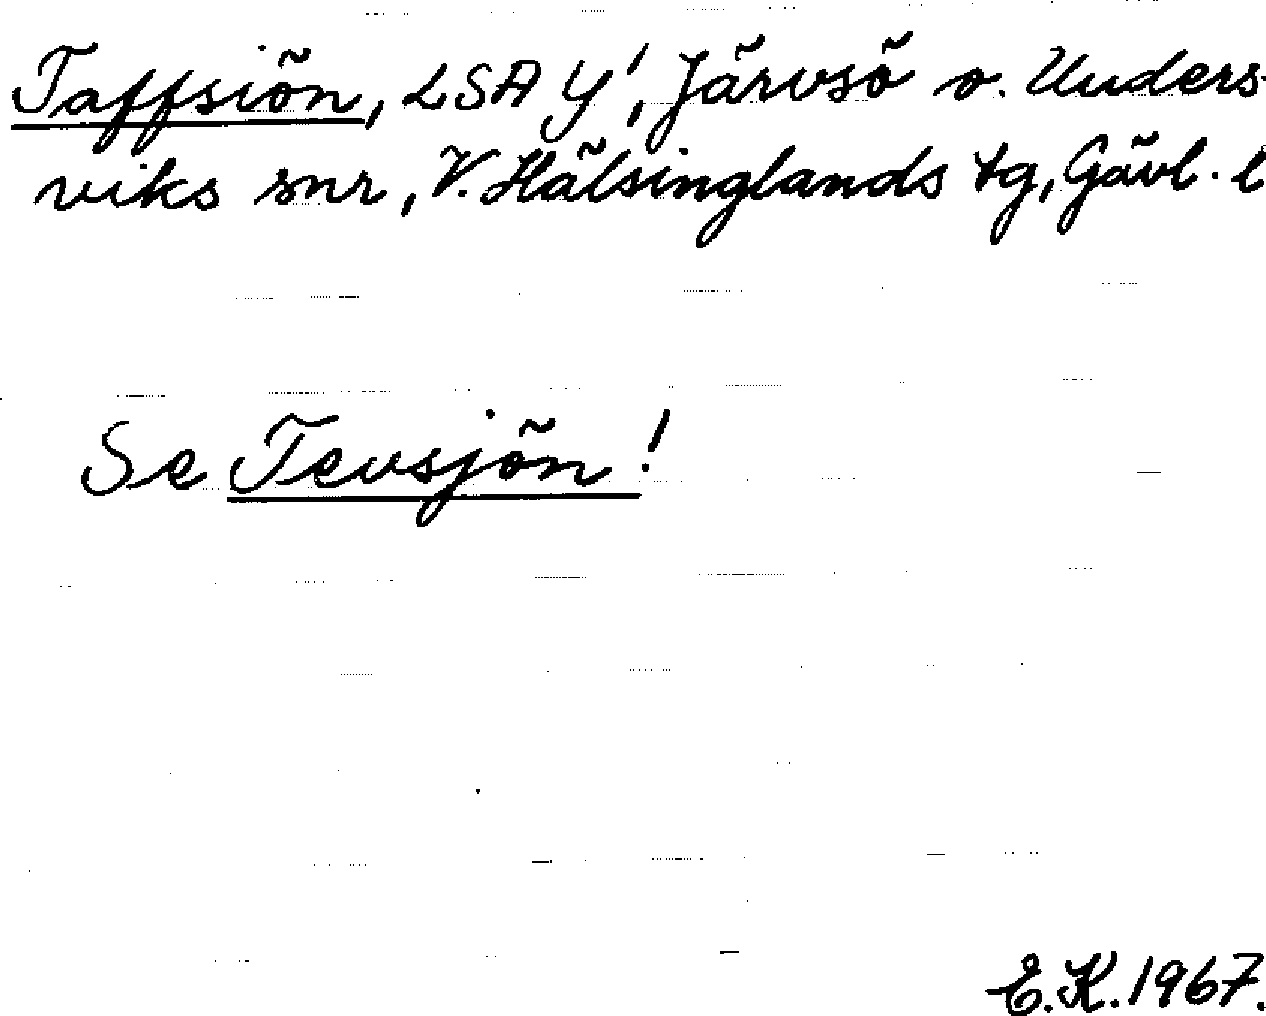 Taffsiön, LSA Y', Järvsö o. Unders-
viks snr, V. Hälsinglands tg, Gävl. l
Se Tevsjön!
E.K. 1967.